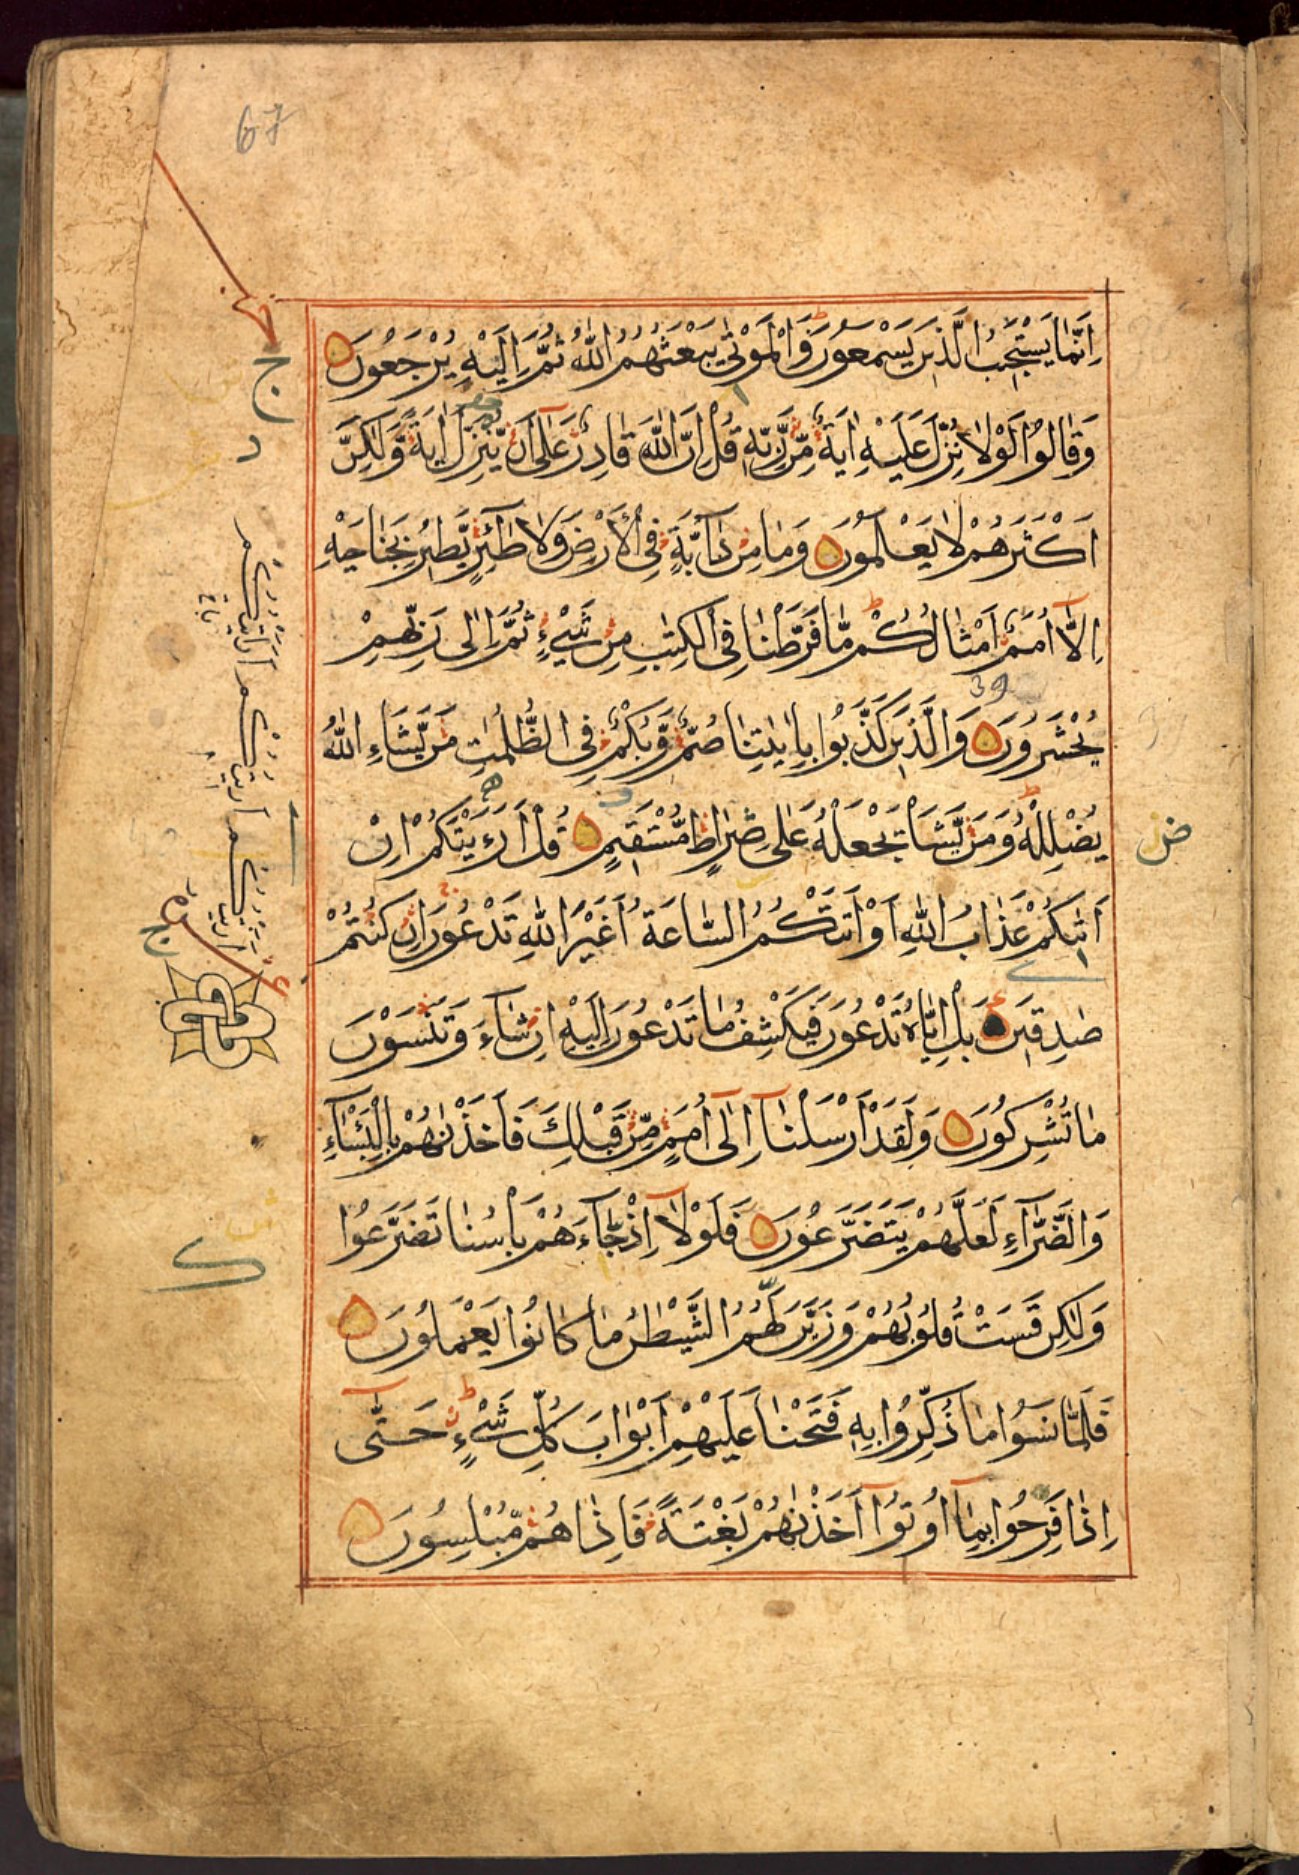 67
اِنَّمَا يَسْتَجِيْبُ الَّذِيْنَ يَسْمَعُوْنَ وَالْمَوْتٰى يَبْعَثُهُمُ اللّٰهُ ثُمَّ اِلَيْهِ يُرْجَعُوْنَ
وَقَالُوْا لَوْلَا نُزِّلَ عَلَيْهِ اٰيَةٌ مِّنْ رَّبِّهٖ قُلْ اِنَّ اللّٰهَ قَادِرٌ عَلٰٓى اَنْ يُّنَزِّلَ اٰيَةً وَّلٰكِنَّ
اَكْثَرَهُمْ لَا يَعْلَمُوْنَ وَمَا مِنْ دَآبَّةٍ فِى الْاَرْضِ وَلَا طٰٓئِرٍ يَّطِيْرُ بِجَنَاحَيْهِ
اِلَّآ اُمَمٌ اَمْثَالُكُمْ مَّا فَرَّطْنَا فِى الْكِتٰبِ مِنْ شَىْءٍ ثُمَّ اِلٰى رَبِّهِمْ
39
يُحْشَرُوْنَ وَالَّذِيْنَ كَذَّبُوْا بِاٰيٰتِنَا صُمٌّ وَّبُكْمٌ فِى الظُّلُمٰتِ مَنْ يَّشَاءِ اللّٰهُ
يُضْلِلْهُ وَمَنْ يَّشَاْ يَجْعَلْهُ عَلٰى صِرَاطٍ مُّسْتَقِيْمٍ قُلْ اَرَءَيْتَكُمْ اِنْ
اَتٰىكُمْ عَذَابُ اللّٰهِ اَوْ اَتَتْكُمُ السَّاعَةُ اَغَيْرَ اللّٰهِ تَدْعُوْنَ اِنْ كُنْتُمْ
صٰدِقِيْنَ بَلْ اِيَّاهُ تَدْعُوْنَ فَيَكْشِفُ مَا تَدْعُوْنَ اِلَيْهِ اِنْ شَآءَ وَتَنْسَوْنَ
مَا تُشْرِكُوْنَ وَلَقَدْ اَرْسَلْنَآ اِلٰٓى اُمَمٍ مِّنْ قَبْلِكَ فَاَخَذْنٰهُمْ بِالْبَاْسَآءِ
وَالضَّرَّآءِ لَعَلَّهُمْ يَتَضَرَّعُوْنَ فَلَوْلَآ اِذْ جَآءَهُمْ بَاْسُنَا تَضَرَّعُوْا
وَلٰكِنْ قَسَتْ قُلُوْبُهُمْ وَزَيَّنَ لَهُمُ الشَّيْطٰنُ مَا كَانُوْا يَعْمَلُوْنَ
فَلَمَّا نَسُوْا مَا ذُكِّرُوْا بِهٖ فَتَحْنَا عَلَيْهِمْ اَبْوَابَ كُلِّ شَىْءٍ حَتّٰٓى
اِذَا فَرِحُوْا بِمَآ اُوْتُوْٓا اَخَذْنٰهُمْ بَغْتَةً فَاِذَا هُمْ مُّبْلِسُوْنَ